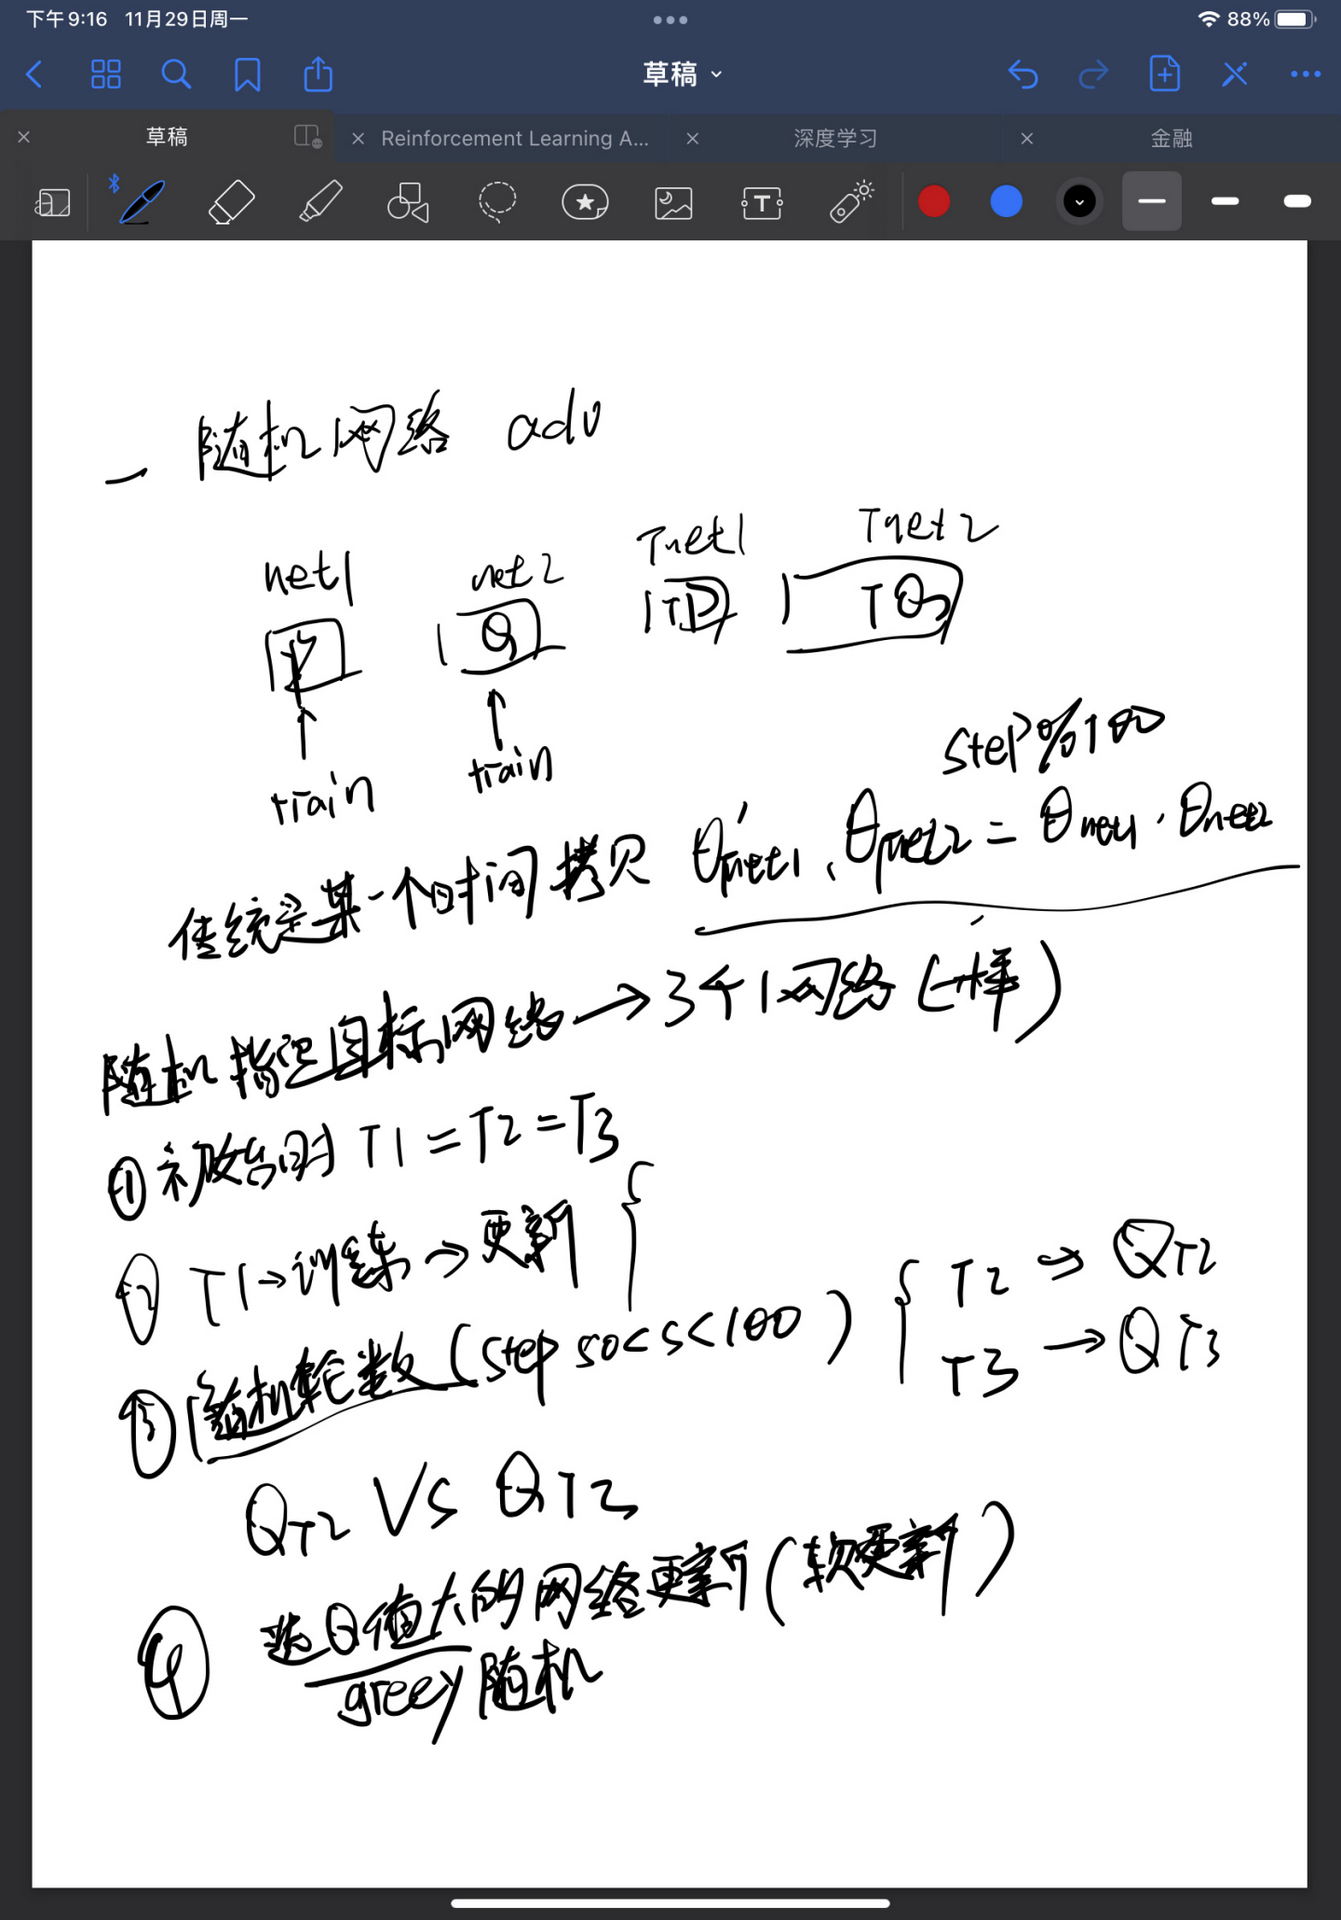 下午9:16 11月29日周一
88%
草稿
草稿
Reinforcement Learning A...
深度学习
金融
一 随机网络 adv
net1 net2 Tnet1 Tnet2
P Q TP TQ
train train
step%100
传统是某一个时间拷贝 θ'Tnet1、θTnet2 = θnet1、θnet2
随机指定目标网络→3个网络(一样)
① 初始时 T1=T2=T3
② T1→训练→更新
③ 随机轮数(step 50<s<100)
T2→QT2
T3→QT3
QT2 VS QT2
④ 选Q值大的网络更新(软更新)
greey 随机